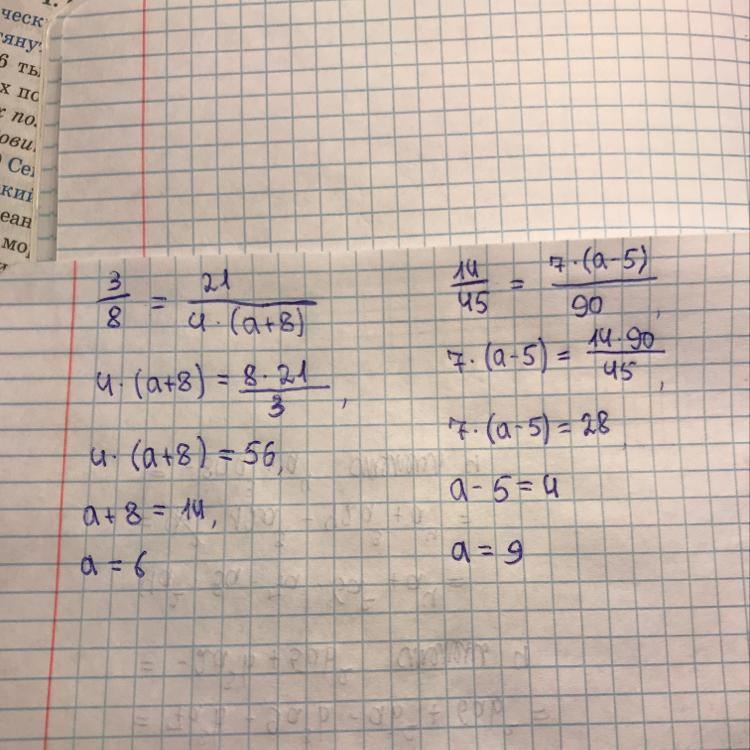 ческ
тяну
6 ты
х по
х по
ови
Се
кий
еан
мо
3/8 = 21/(4·(a+8))
4·(a+8) = 8·21/3,
4·(a+8) = 56,
a+8 = 14,
a = 6
14/45 = 7·(a-5)/90,
7·(a-5) = 14·90/45,
7·(a-5) = 28
a-5 = 4
a = 9